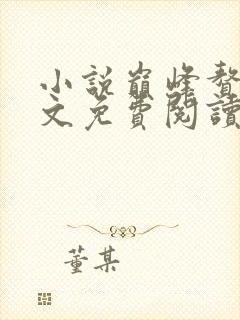 小說巔峰贅
文免費閱讀
董某